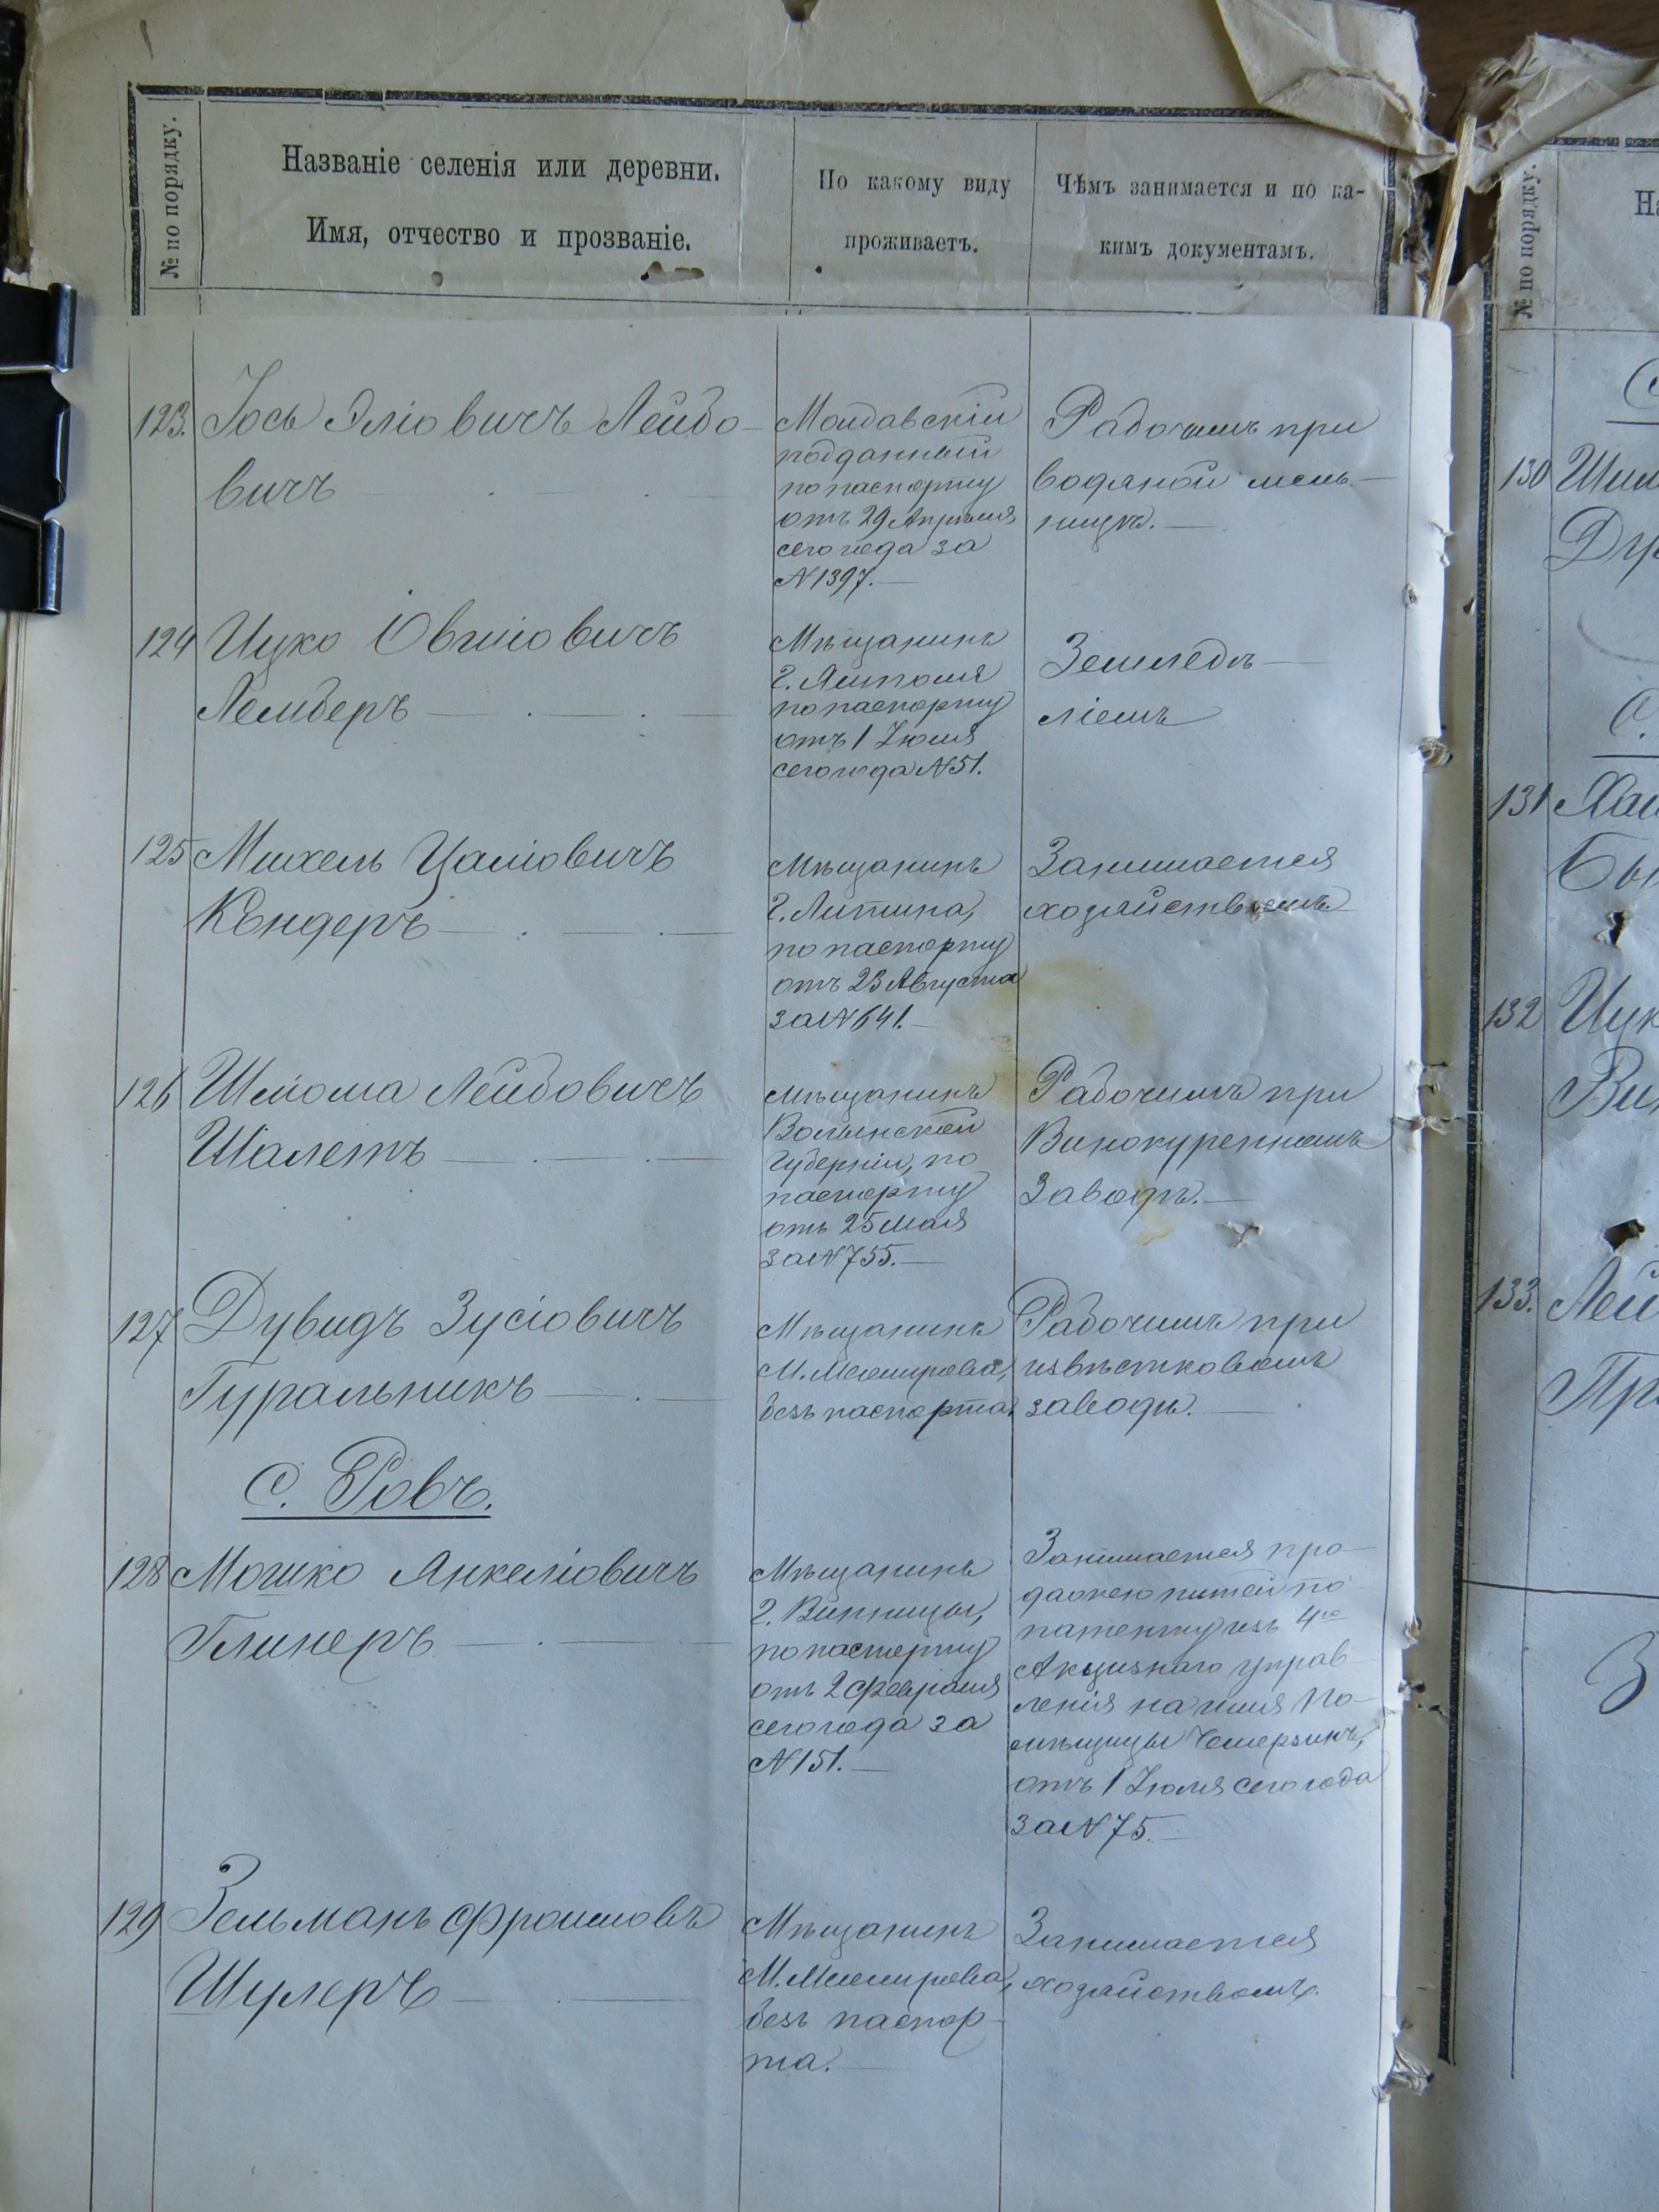 № по порядку.
Названіе селенія или деревни.
Имя, отчество и прозваніе.
По какому виду
проживаетъ.
Чѣмъ занимается и по ка-
кимъ документамъ.
123. Іось Эліовичъ Лейбо-
вичъ
Молдавскій
подданный
по паспорту
отъ 29 Апрѣля
сего года за
N 1397.
Рабочимъ при
водяной мель-
ницѣ.
124 Ицко Овшіовичъ
Лемберъ
Мѣщанинъ
г. Ямполя
по паспорту
отъ 1 Іюля
сего года N 51.
Земледѣ-
ліемъ
125 Михель Цаліовичъ
Кондеръ
Мѣщанинъ
г. Литина,
по паспорту
отъ 23 Августа
за N 641.
Занимается
хозяйствомъ
126 Шлома Лейбовичъ
Шалетъ
Мѣщанинъ
Волынской
Губерніи, по
паспорту
отъ 25 Мая
за N 755.
Рабочимъ при
Винокуренномъ
Заводѣ.
127 Дувидъ Зусіовичъ
Гуральникъ
Мѣщанинъ
М. Межирова,
безъ паспорта.
Рабочимъ при
извѣстковомъ
заводѣ.
С. Ровъ.
128 Мошко Янкеліовичъ
Глинеръ
Мѣщанинъ
г. Винницы,
по паспорту
отъ 2 Февраля
сего года за
N 151.
Занимается про-
дажею питей по
патенту изъ 4го
Акцизнаго управ-
ленія на имя По-
мѣщицы
отъ 1 Іюля сего года
за N 75.
129 Зельманъ Фроимовъ
Шулеръ
Мѣщанинъ
М. Межирова,
безъ паспор-
та.
Занимается
хозяйствомъ.
№ по порядку.
130
131
132
133.